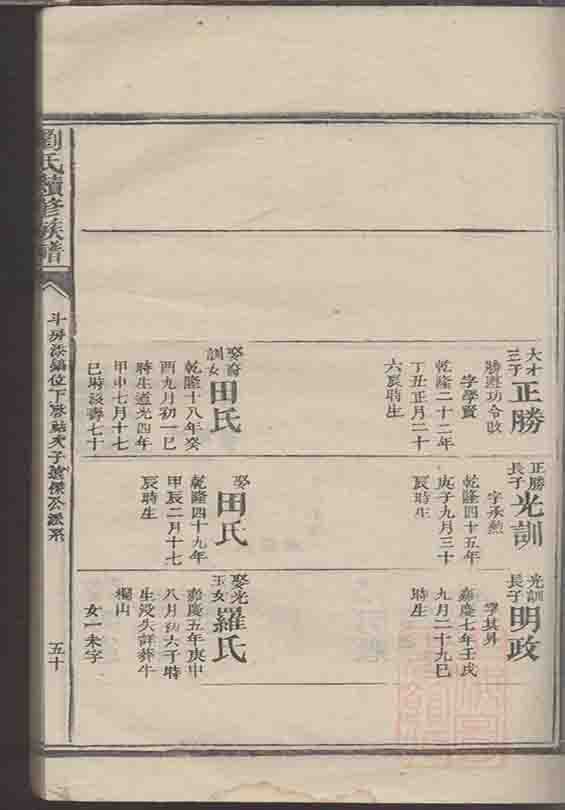 劉氏續修族譜
五十
大才三子
正勝
字學賢
乾隆二十二年
丁丑正月二十
六辰時生
訓女
田氏
乾隆十八年癸
酉九月初一巳
時生道光四年
甲申七月十七
巳時沒壽七十
正勝長子
光訓
乾隆四十五年
庚子九月三十
辰時生
娶
田氏
乾隆四十九年
甲辰二月十七
辰時生
光訓長子
明政
字其昇
嘉慶七年壬戌
九月二十九巳
時生
娶光玉女
羅氏
嘉慶五年庚申
八月初六子時
生沒失詳葬牛
欄山
女一未字